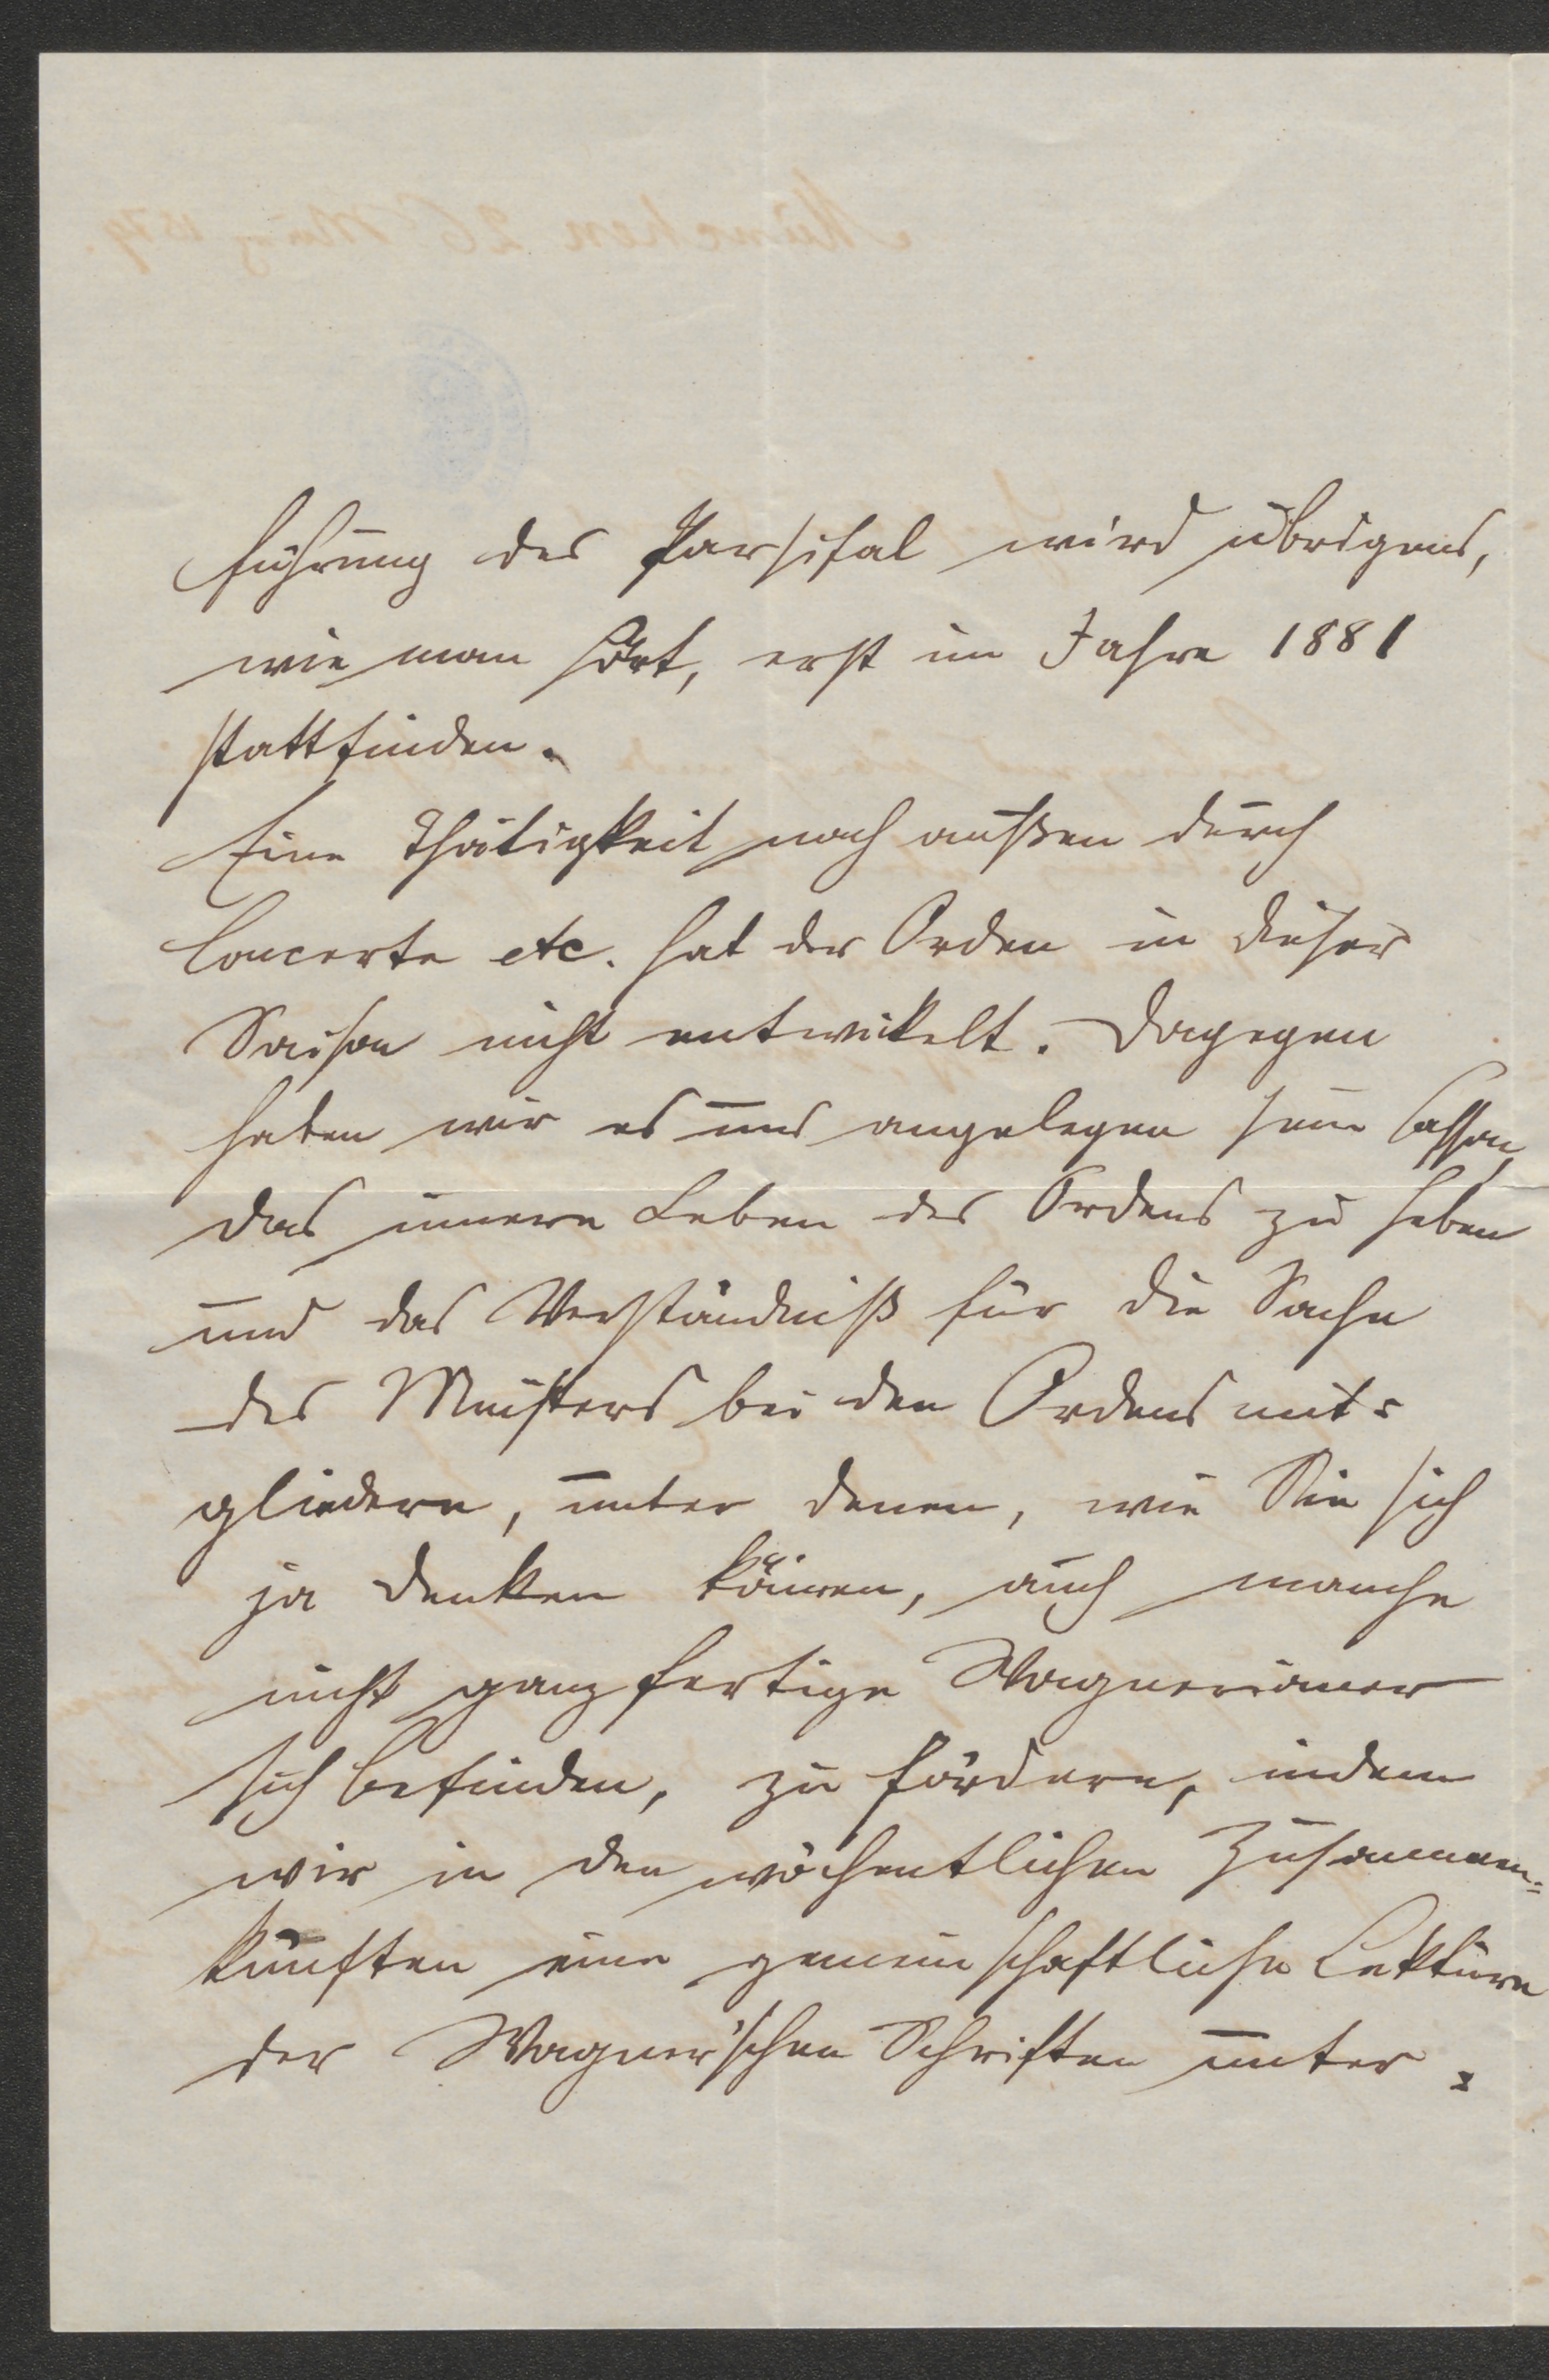 führung des Parsifal wird übrigens,
wie man hört, erst im Jahre 1881
stattfinden.
Eine Thätigkeit nach außen durch
Concerte etc. hat der Orden in dieser
Saison nicht entwickelt. Dagegen
haben wir es uns angelegen sein lassen,
das innere Leben des Ordens zu heben
und das Verständniß für die Sache
des Meisters bei den Ordensmit-
gliedern, unter denen, wie Sie sich
ja denken können, auch manche
nicht ganz fertige Wagnerianer
sich befinden, zu fördern, indem
wir in den wöchentlichen Zusammen-
künften eine gemeinschaftliche Lektüre
der Wagner'schen Schriften unter-